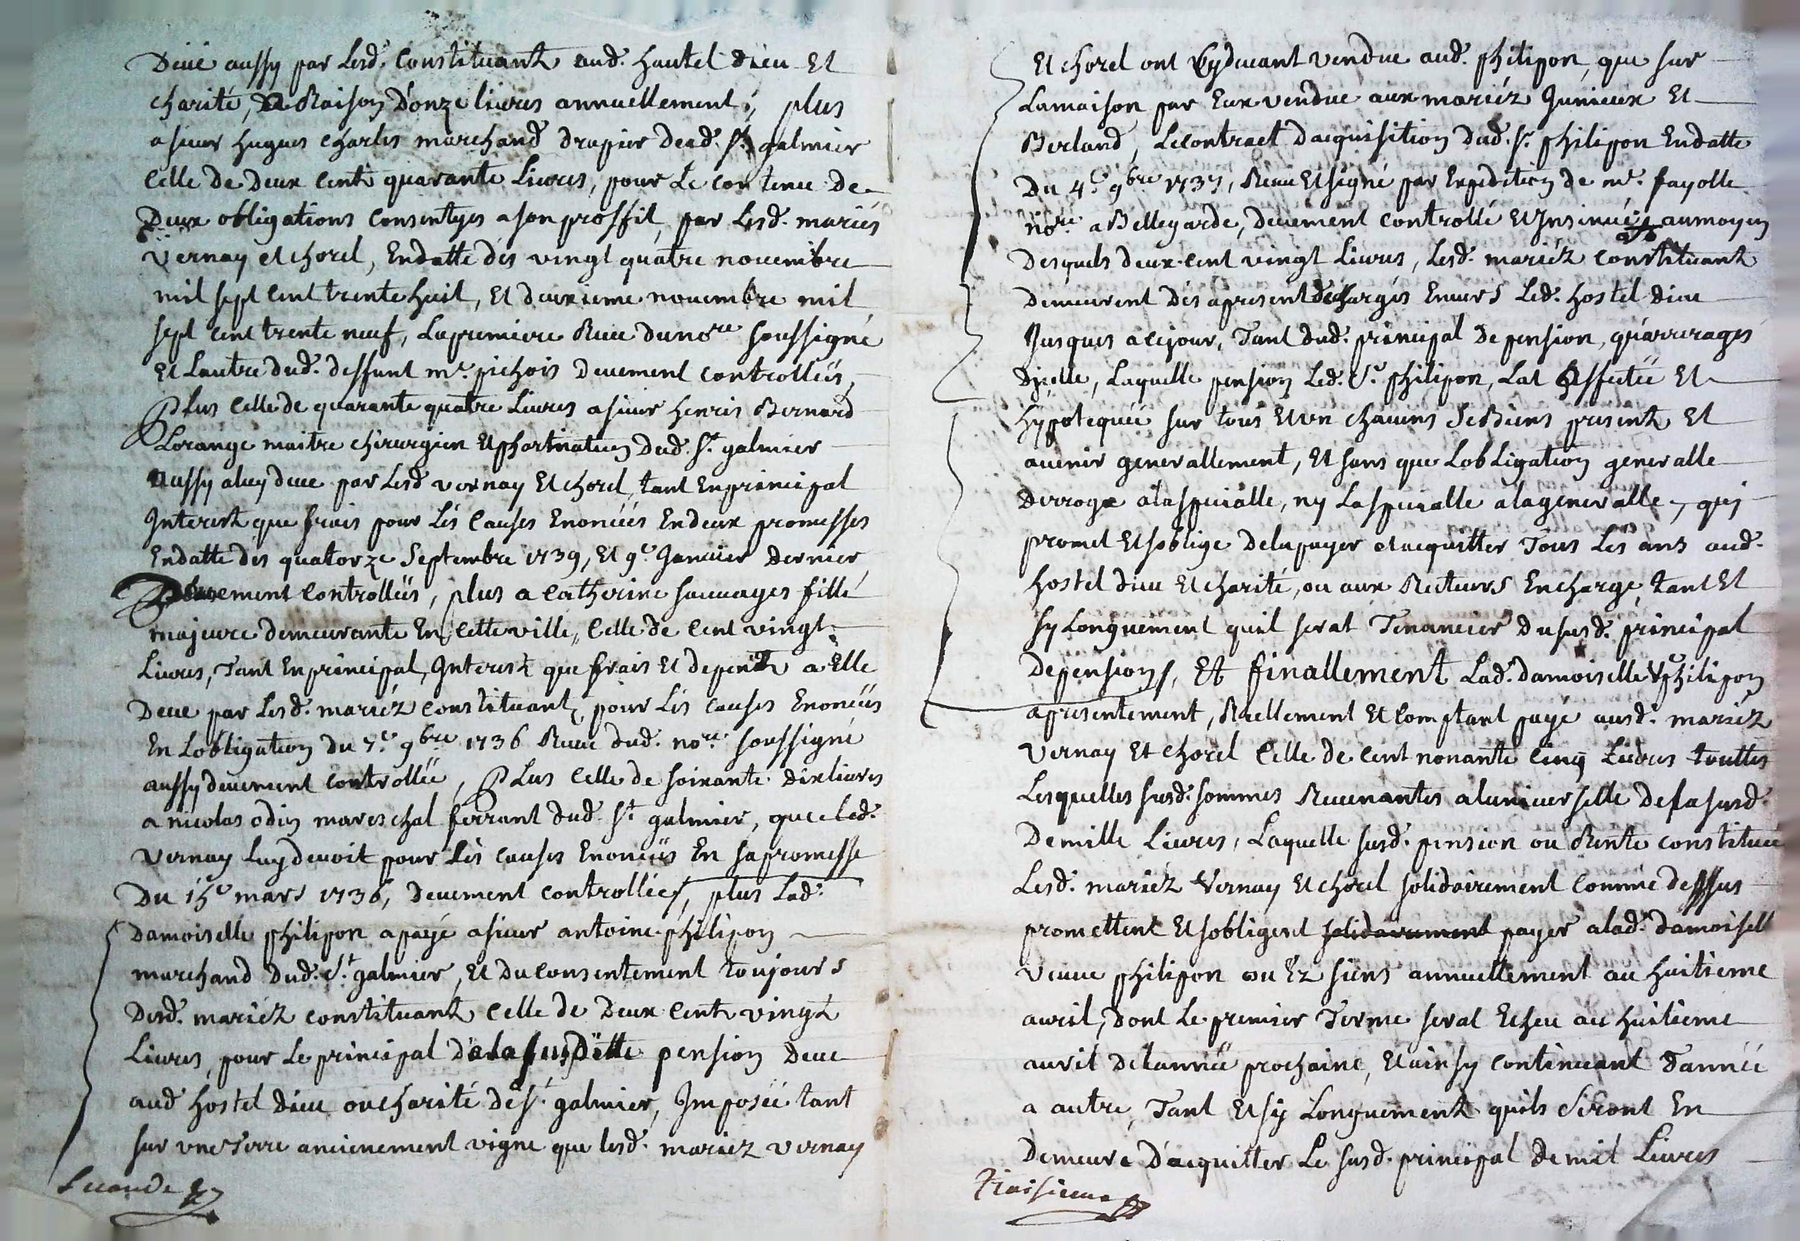 Deüe aussy par lesd. Constituants aud. hautel dieu Et
charité, a Raison d'onze livres annuellement, plus
a sieur hugues charles marchand drapier dead. st. galmier
Celle de Deux Cents quarante Livres, pour Le contenu de
Deux obligations Consentyes a son proffit, par Lesd. mariés
Vernay et chorel, Endatte dés vingt quatre novembre
mil sept cent trente huit, Et deuxieme novembre mil
sept cent trente neuf, La premiere Reeue du nore soussigné
Et Lautre dud. deffunt me. pichois Deuement controlleés,
Plus Celle de quarante quatre Livres a sieur henris Bernard
Lorange maitre chirurgien Dud. st. galmier
aussy a luy deue par Lesd vernay Et chorel, tant En principal
Interest que frais pour Lés Causes Enonceés En deux promesses
Endatte dés quatorze Septembre 1739, Et 9e Januier dernier
Deuement Controlleés, plus a Catherine sauuages fille
majeure demeurante En Cette ville, Celle de Cent vingt
Livres, Tant En principal, Interest que frais Et depens a Elle
Deue par Lesd. mariéz constituants, pour Lés Causes Enonceés
En Lobligation du 7e. 9bre 1736 Reeue dud. nore soussigné
aussy deuement controllée, Plus Celle de soixante dix livres
a nicolas odin mareschal ferrant dud. st. galmier, que led.
Vernay Luy deuoit pour Lés Causes Enonceés En sa promesse
Du 15e mars 1736, Deuement controlleé, plus Lad.
Damoiselle philipon a payé a sieur antoine philipon
marchand dud. st. galmier, Et du consentement toujours
Desd. mariéz constituants Celle de Deux Cents vingt
Livres, pour Le principal de la susditte pension Deue
aud hostel dieu ou charité de st. galmier, Imposée tant
sur vne Terre ancienement vigne que lesd. mariez vernay
Seconde
Et chorel ont Cydeuant vendue aud. philipon, que sur
La maison par Eux vendue aux mariéz Junieux Et
Berland, Le contract dacquisition dud. sr. philipon Endatte
Du 4e 9bre 1737, Reeue Et signé par Expedition de me. fayolle
nore. a Bellegarde, deuement controllé Et Insinué, au moyen
Desquels deux cent vingt Livres, Lesd. mariéz constituants
demeurent dés apresent déchargés Enuers Led. hostel dieu
Jusques a ce jour, Tant dud. principal de pension, qu'arrerages
D'jcelle, Laquelle pension Led. Sr. philipon, Lat affectée Et
hÿpotequée sur tous Et vn chacuns Ses Biens present Et
auenir generallement, Et sans que Lobligation generalle
derroge a la specialle, ny La specialle a la generalle, qui
promet Et soblige de la payer et acquitter Tous Les ans aud.
hostel dieu Et charité, ou aux Recteurs En charge, tant Et
sy Longuement quil serat Tenancier du susd. principal
De pension, Et finallement Lad. damoiselle ve philipon
a presentement, Reellement Et Comptant payé ausd. mariéz
Vernay Et chorel Celle de Cent nonante Cinq Livres touttes
Lesquelles susd. sommes Reuenantes a luniuerselle de la susd.
De mille Livres, Laquelle susd. pension ou Rente constituée
Lesd. mariéz Vernay Et chorel solidairement Comme dessus
promettent Et sobligent solidairement payer a lad. damoiselle
veuue philipon ou Ez siens annuellement au huitieme
auril, dont Le premier Terme serat Echeu au huitieme
auril de L'année prochaine, Et ainsy continuant dannée
a autre, Tant Et sy Longuement quils Seront En
demeure D'acquitter Le susd. principal de mil Livres
Troisieme